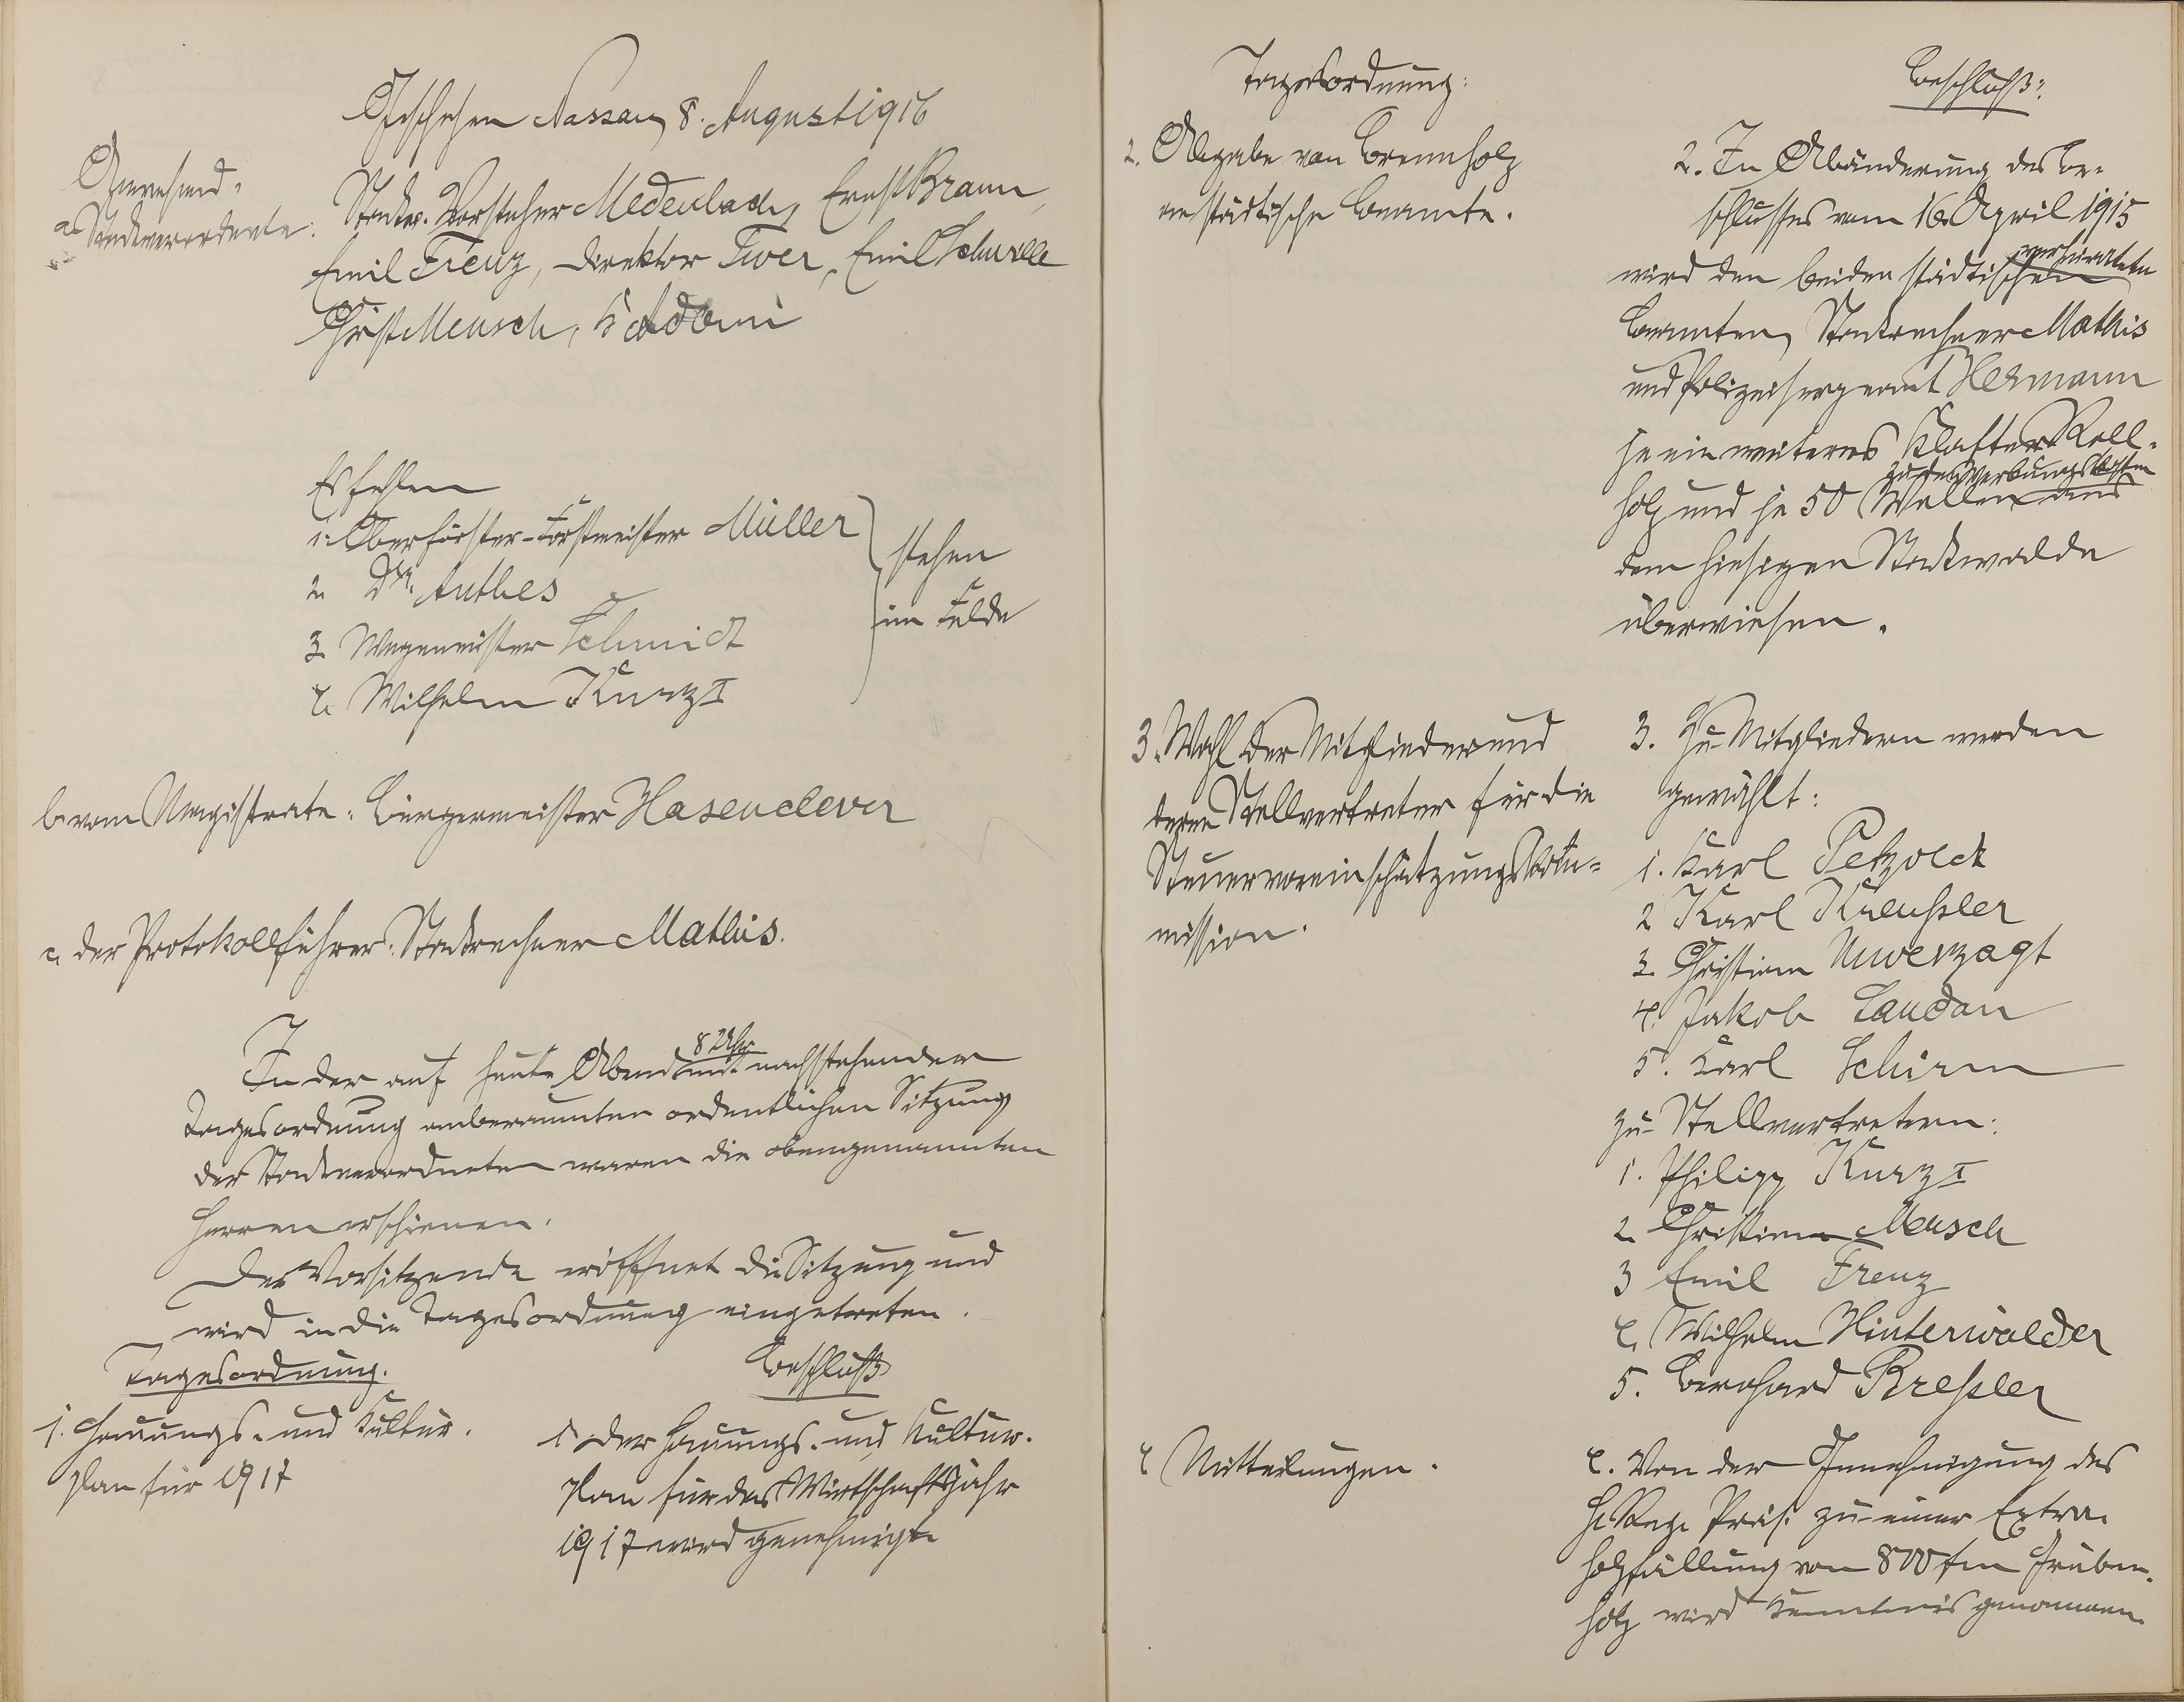 Geschehen Nassau, 8. August 1916
Anwesend:
a. Stadtverordnete:
Stadtv. Vorsteher Medenbach, Ernst Braun,
Emil Trenz, Direktor Twer, Emil Schwille
Christ. Mensch,
Es fehlen
1. Oberförster-Forstmeister Müller
2. Dr. Anthes
3. Wegemeister Schmidt
4. Wilhelm Kurz I
stehen
im Felde
b. vom Magistrate: Bürgermeister Hasenclever
c. der Protokollführer: Stadtrechner Mathis.
8 Uhr
In der auf heute Abend mit nachstehender
Tagesordnung anberaumten ordentlichen Sitzung
der Stadtverordneten waren die obengenannten
Herren erschienen.
Der Vorsitzende eröffnet die Sitzung und
wird in die Tagesordnung eingetreten.
Tagesordnung.
Beschluß
1. Hauungs- und Kultur-
plan für 1917
1. Der Hauungs- und Kultur-
plan für das Wirtschaftsjahr
1917 wird genehmigt.
Tagesordnung:
Beschluß:
2. Abgabe von Brennholz
an städtische Beamte.
2. In Abänderung des Be-
schlusses vom 16. April 1915
verheirateten
wird den beiden städtischen
Beamten, Stadtrechner Mathis
und Polizeisergeant Hermann
je ein weiteres Klafter Roll-
zu den Werbungskosten
holz und je 50 Wellen aus
dem hiesigen Stadtwalde
überwiesen.
3. Wahl der Mitglieder und
deren Stellvertreter für die
Steuervoreinschätzungskom-
mission.
3. Zu Mitgliedern werden
gewählt:
1. Karl Petzold
2. Karl Kreußler
3. Christian Unverzagt
4. Jakob Landau
5. Karl Schirm
zu Stellvertretern:
1. Philipp Kurz I
2. Christian Mensch
3 Emil Trenz
4. Wilhelm Hinterwälder
5. Bernhard Breßler
4. Mitteilungen.
4. Von der Genehmigung des
H. Reg. Präs. zu einer Extra-
holzfällung von 800 fm Gruben-
holz wird Kenntnis genommen.